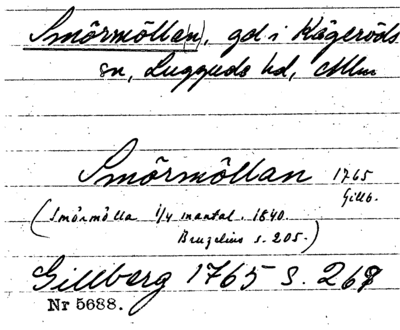 Smörmölla(n), gd i Kågeröds
sn, Luggude hd, Mlm
Smörmöllan 1765
Gillb.
(Smörmölla 1/4 mantal. 1840.
Bruzelius s. 205.)
Gillberg 1765 s. 267
Nr 5688.